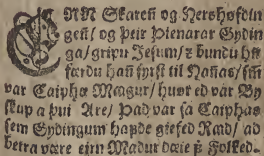 ENN Skaren og Hershøfdin
gen/ og þeir Þienarar Gydin
ga/ gripu Jesum/ z bundu hn
færdu han fyrst til Hañas/ sm
var Caiphe Mꜳgur/ huør ed vár By
skup a þui Are/ Þad var sa Caiphas
sem Gydingum hafde giefed Rꜳd/ ad
betra være eirn Madur dæie þ Folked.